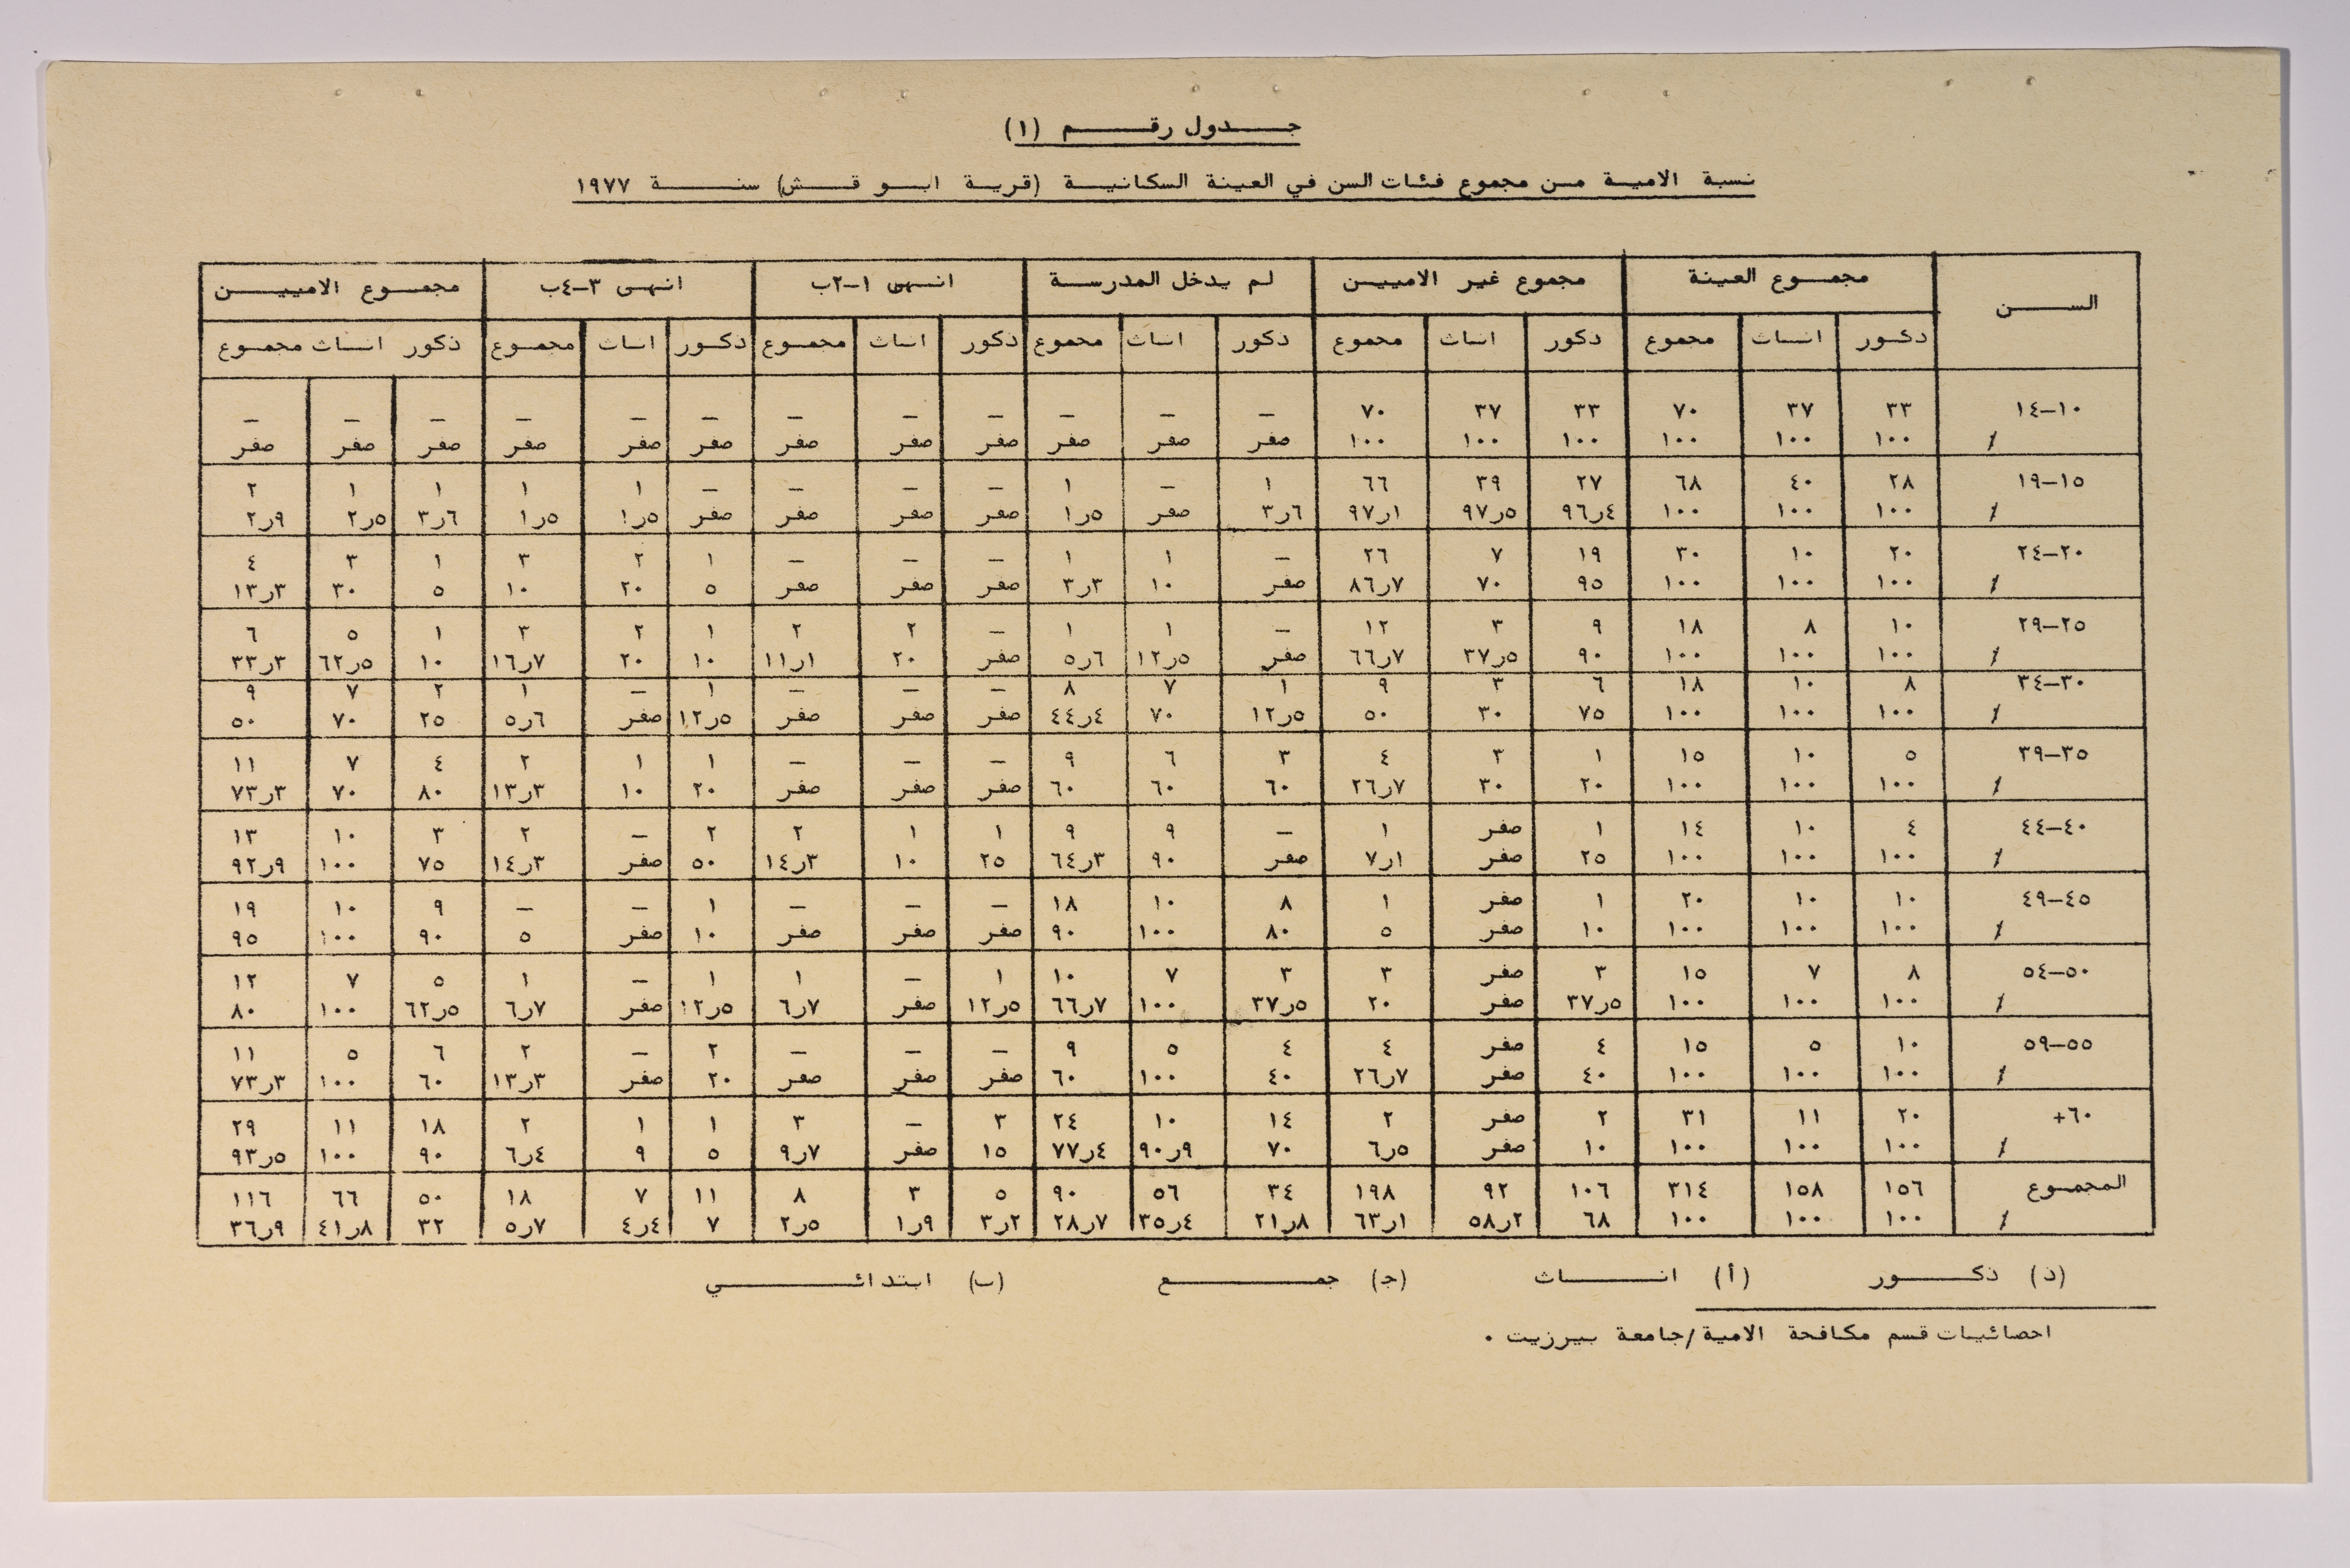 جدول رقم (١)
نسبة الامية من مجموع فئات السن في العينة السكانية (قرية ابو قش) سنة ١٩٧٧
السن مجموع العينة مجموع غير الاميين لم يدخل المدرسة انهى ١-٢ب انهى ٣-٤ب مجموع الاميين
ذكور اناث مجموع ذكور اناث مجموع ذكور اناث مجموع ذكور اناث مجموع ذكور اناث مجموع ذكور اناث مجموع
١٠-١٤ ٣٣ ٣٧ ٧٠ ٣٣ ٣٧ ٧٠ – – – – – – – – – – – –
٪ ١٠٠ ١٠٠ ١٠٠ ١٠٠ ١٠٠ ١٠٠ صفر صفر صفر صفر صفر صفر صفر صفر صفر صفر صفر صفر
١٥-١٩ ٢٨ ٤٠ ٦٨ ٢٧ ٣٩ ٦٦ ١ – ١ – – – – ١ ١ ١ ١ ٢
٪ ١٠٠ ١٠٠ ١٠٠ ٤ر٩٦ ٥ر٩٧ ١ر٩٧ ٦ر٣ صفر ٥ر١ صفر صفر صفر صفر ٥ر١ ٥ر١ ٦ر٣ ٥ر٢ ٩ر٢
٢٠-٢٤ ٢٠ ١٠ ٣٠ ١٩ ٧ ٢٦ – ١ ١ – – – ١ ٢ ٣ ١ ٣ ٤
٪ ١٠٠ ١٠٠ ١٠٠ ٩٥ ٧٠ ٧ر٨٦ صفر ١٠ ٣ر٣ صفر صفر صفر ٥ ٢٠ ١٠ ٥ ٣٠ ٣ر١٣
٢٥-٢٩ ١٠ ٨ ١٨ ٩ ٣ ١٢ – ١ ١ – ٢ ٢ ١ ٢ ٣ ١ ٥ ٦
٪ ١٠٠ ١٠٠ ١٠٠ ٩٠ ٥ر٣٧ ٧ر٦٦ صفر ٥ر١٢ ٦ر٥ صفر ٢٠ ١ر١١ ١٠ ٢٠ ٧ر١٦ ١٠ ٥ر٦٢ ٣ر٣٣
٣٠-٣٤ ٨ ١٠ ١٨ ٦ ٣ ٩ ١ ٧ ٨ – – – ١ – ١ ٢ ٧ ٩
٪ ١٠٠ ١٠٠ ١٠٠ ٧٥ ٣٠ ٥٠ ٥ر١٢ ٧٠ ٤ر٤٤ صفر صفر صفر ٥ر١٢ صفر ٦ر٥ ٢٥ ٧٠ ٥٠
٣٥-٣٩ ٥ ١٠ ١٥ ١ ٣ ٤ ٣ ٦ ٩ – – – ١ ١ ٢ ٤ ٧ ١١
٪ ١٠٠ ١٠٠ ١٠٠ ٢٠ ٣٠ ٧ر٢٦ ٦٠ ٦٠ ٦٠ صفر صفر صفر ٢٠ ١٠ ٣ر١٣ ٨٠ ٧٠ ٣ر٧٣
٤٠-٤٤ ٤ ١٠ ١٤ ١ صفر ١ – ٩ ٩ ١ ١ ٢ ٢ – ٢ ٣ ١٠ ١٣
٪ ١٠٠ ١٠٠ ١٠٠ ٢٥ صفر ١ر٧ صفر ٩٠ ٣ر٦٤ ٢٥ ١٠ ٣ر١٤ ٥٠ صفر ٣ر١٤ ٧٥ ١٠٠ ٩ر٩٢
٤٥-٤٩ ١٠ ١٠ ٢٠ ١ صفر ١ ٨ ١٠ ١٨ – – – ١ – – ٩ ١٠ ١٩
٪ ١٠٠ ١٠٠ ١٠٠ ١٠ صفر ٥ ٨٠ ١٠٠ ٩٠ صفر صفر صفر ١٠ صفر ٥ ٩٠ ١٠٠ ٩٥
٥٠-٥٤ ٨ ٧ ١٥ ٣ صفر ٣ ٣ ٧ ١٠ ١ – ١ ١ – ١ ٥ ٧ ١٢
٪ ١٠٠ ١٠٠ ١٠٠ ٥ر٣٧ صفر ٢٠ ٥ر٣٧ ١٠٠ ٧ر٦٦ ٥ر١٢ صفر ٧ر٦ ٥ر١٢ صفر ٧ر٦ ٥ر٦٢ ١٠٠ ٨٠
٥٥-٥٩ ١٠ ٥ ١٥ ٤ صفر ٤ ٤ ٥ ٩ – – – ٢ – ٢ ٦ ٥ ١١
٪ ١٠٠ ١٠٠ ١٠٠ ٤٠ صفر ٧ر٢٦ ٤٠ ١٠٠ ٦٠ صفر صفر صفر ٢٠ صفر ٣ر١٣ ٦٠ ١٠٠ ٣ر٧٣
٦٠+ ٢٠ ١١ ٣١ ٢ صفر ٢ ١٤ ١٠ ٢٤ ٣ – ٣ ١ ١ ٢ ١٨ ١١ ٢٩
٪ ١٠٠ ١٠٠ ١٠٠ ١٠ صفر ٥ر٦ ٧٠ ٩ر٩٠ ٤ر٧٧ ١٥ صفر ٧ر٩ ٥ ٩ ٤ر٦ ٩٠ ١٠٠ ٥ر٩٣
المجموع ١٥٦ ١٥٨ ٣١٤ ١٠٦ ٩٢ ١٩٨ ٣٤ ٥٦ ٩٠ ٥ ٣ ٨ ١١ ٧ ١٨ ٥٠ ٦٦ ١١٦
٪ ١٠٠ ١٠٠ ١٠٠ ٦٨ ٢ر٥٨ ١ر٦٣ ٨ر٢١ ٤ر٣٥ ٧ر٢٨ ٢ر٣ ٩ر١ ٥ر٢ ٧ ٤ر٤ ٧ر٥ ٣٢ ٨ر٤١ ٩ر٣٦
(ذ) ذكور (أ) اناث (ج) جمع (ب) ابتدائي
احصائيات قسم مكافحة الامية/جامعة بيرزيت .